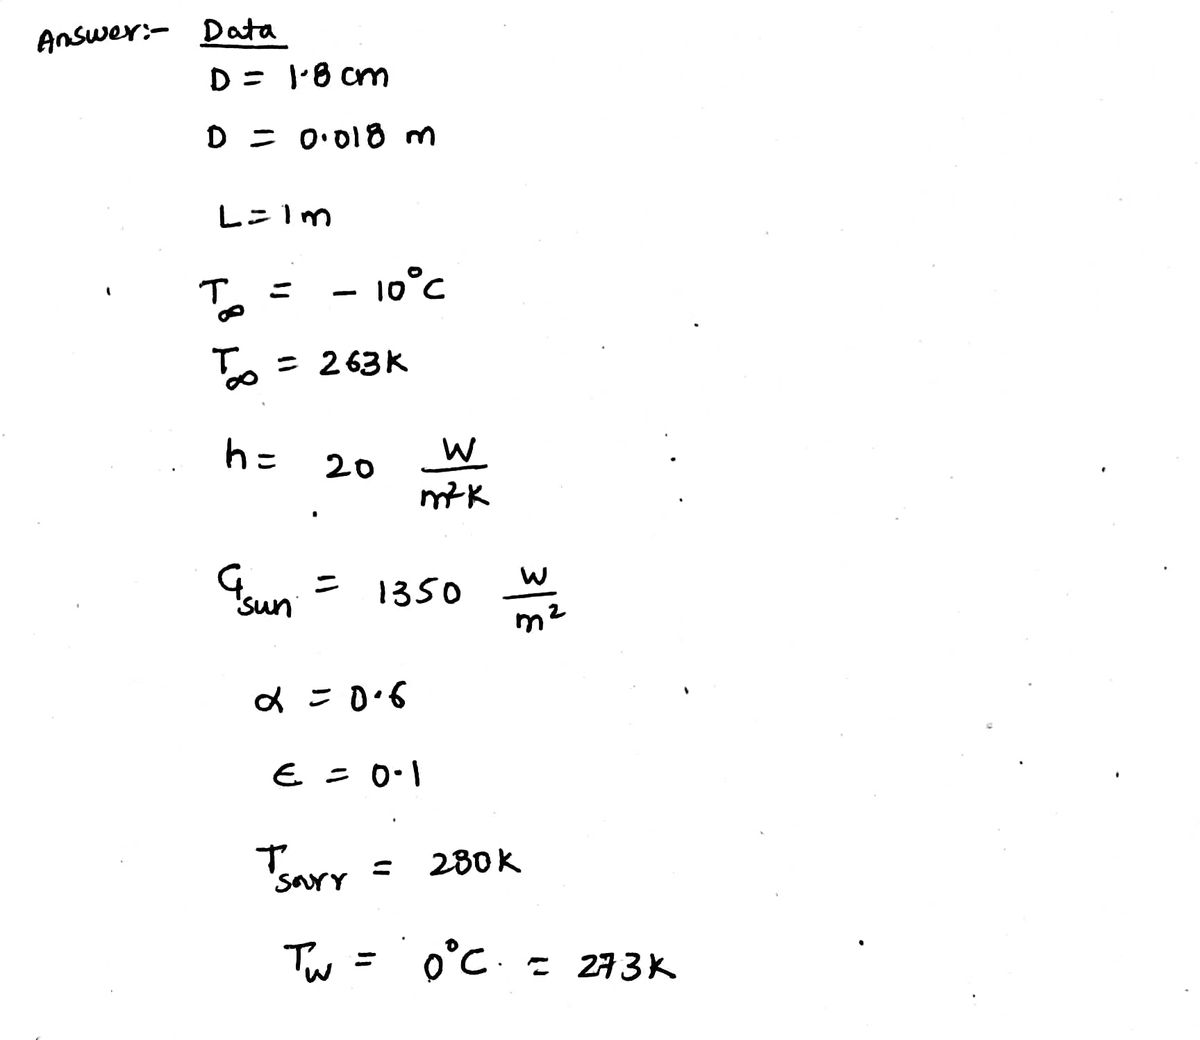 Answer:- Data
D = 1.8 cm
D = 0.018 m
L = 1m
T∞ = - 10°C
T∞ = 263K
h = 20 W/m²K
Gsun = 1350 W/m²
α = 0.6
ϵ = 0.1
Tsurr = 280K
Tw = 0°C. = 273K